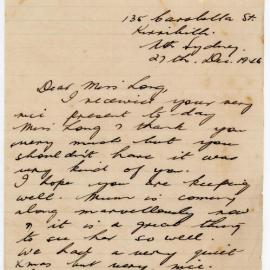 135 Carabella St.
Kirribilli.
Nth Sydney.
27th. Dec. 1946
Dear Miss Long,
I received your very
nice present to day
Miss Long & thank you
very much but you
shouldn't have it was
very kind of you.
I hope you are keeping
well. Mum is coming
along marvellously now
& it is a great thing
to see her so well.
We had a very quiet
Xmas but very nice.